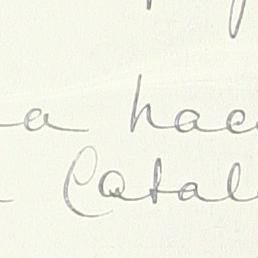 a hac
Catal